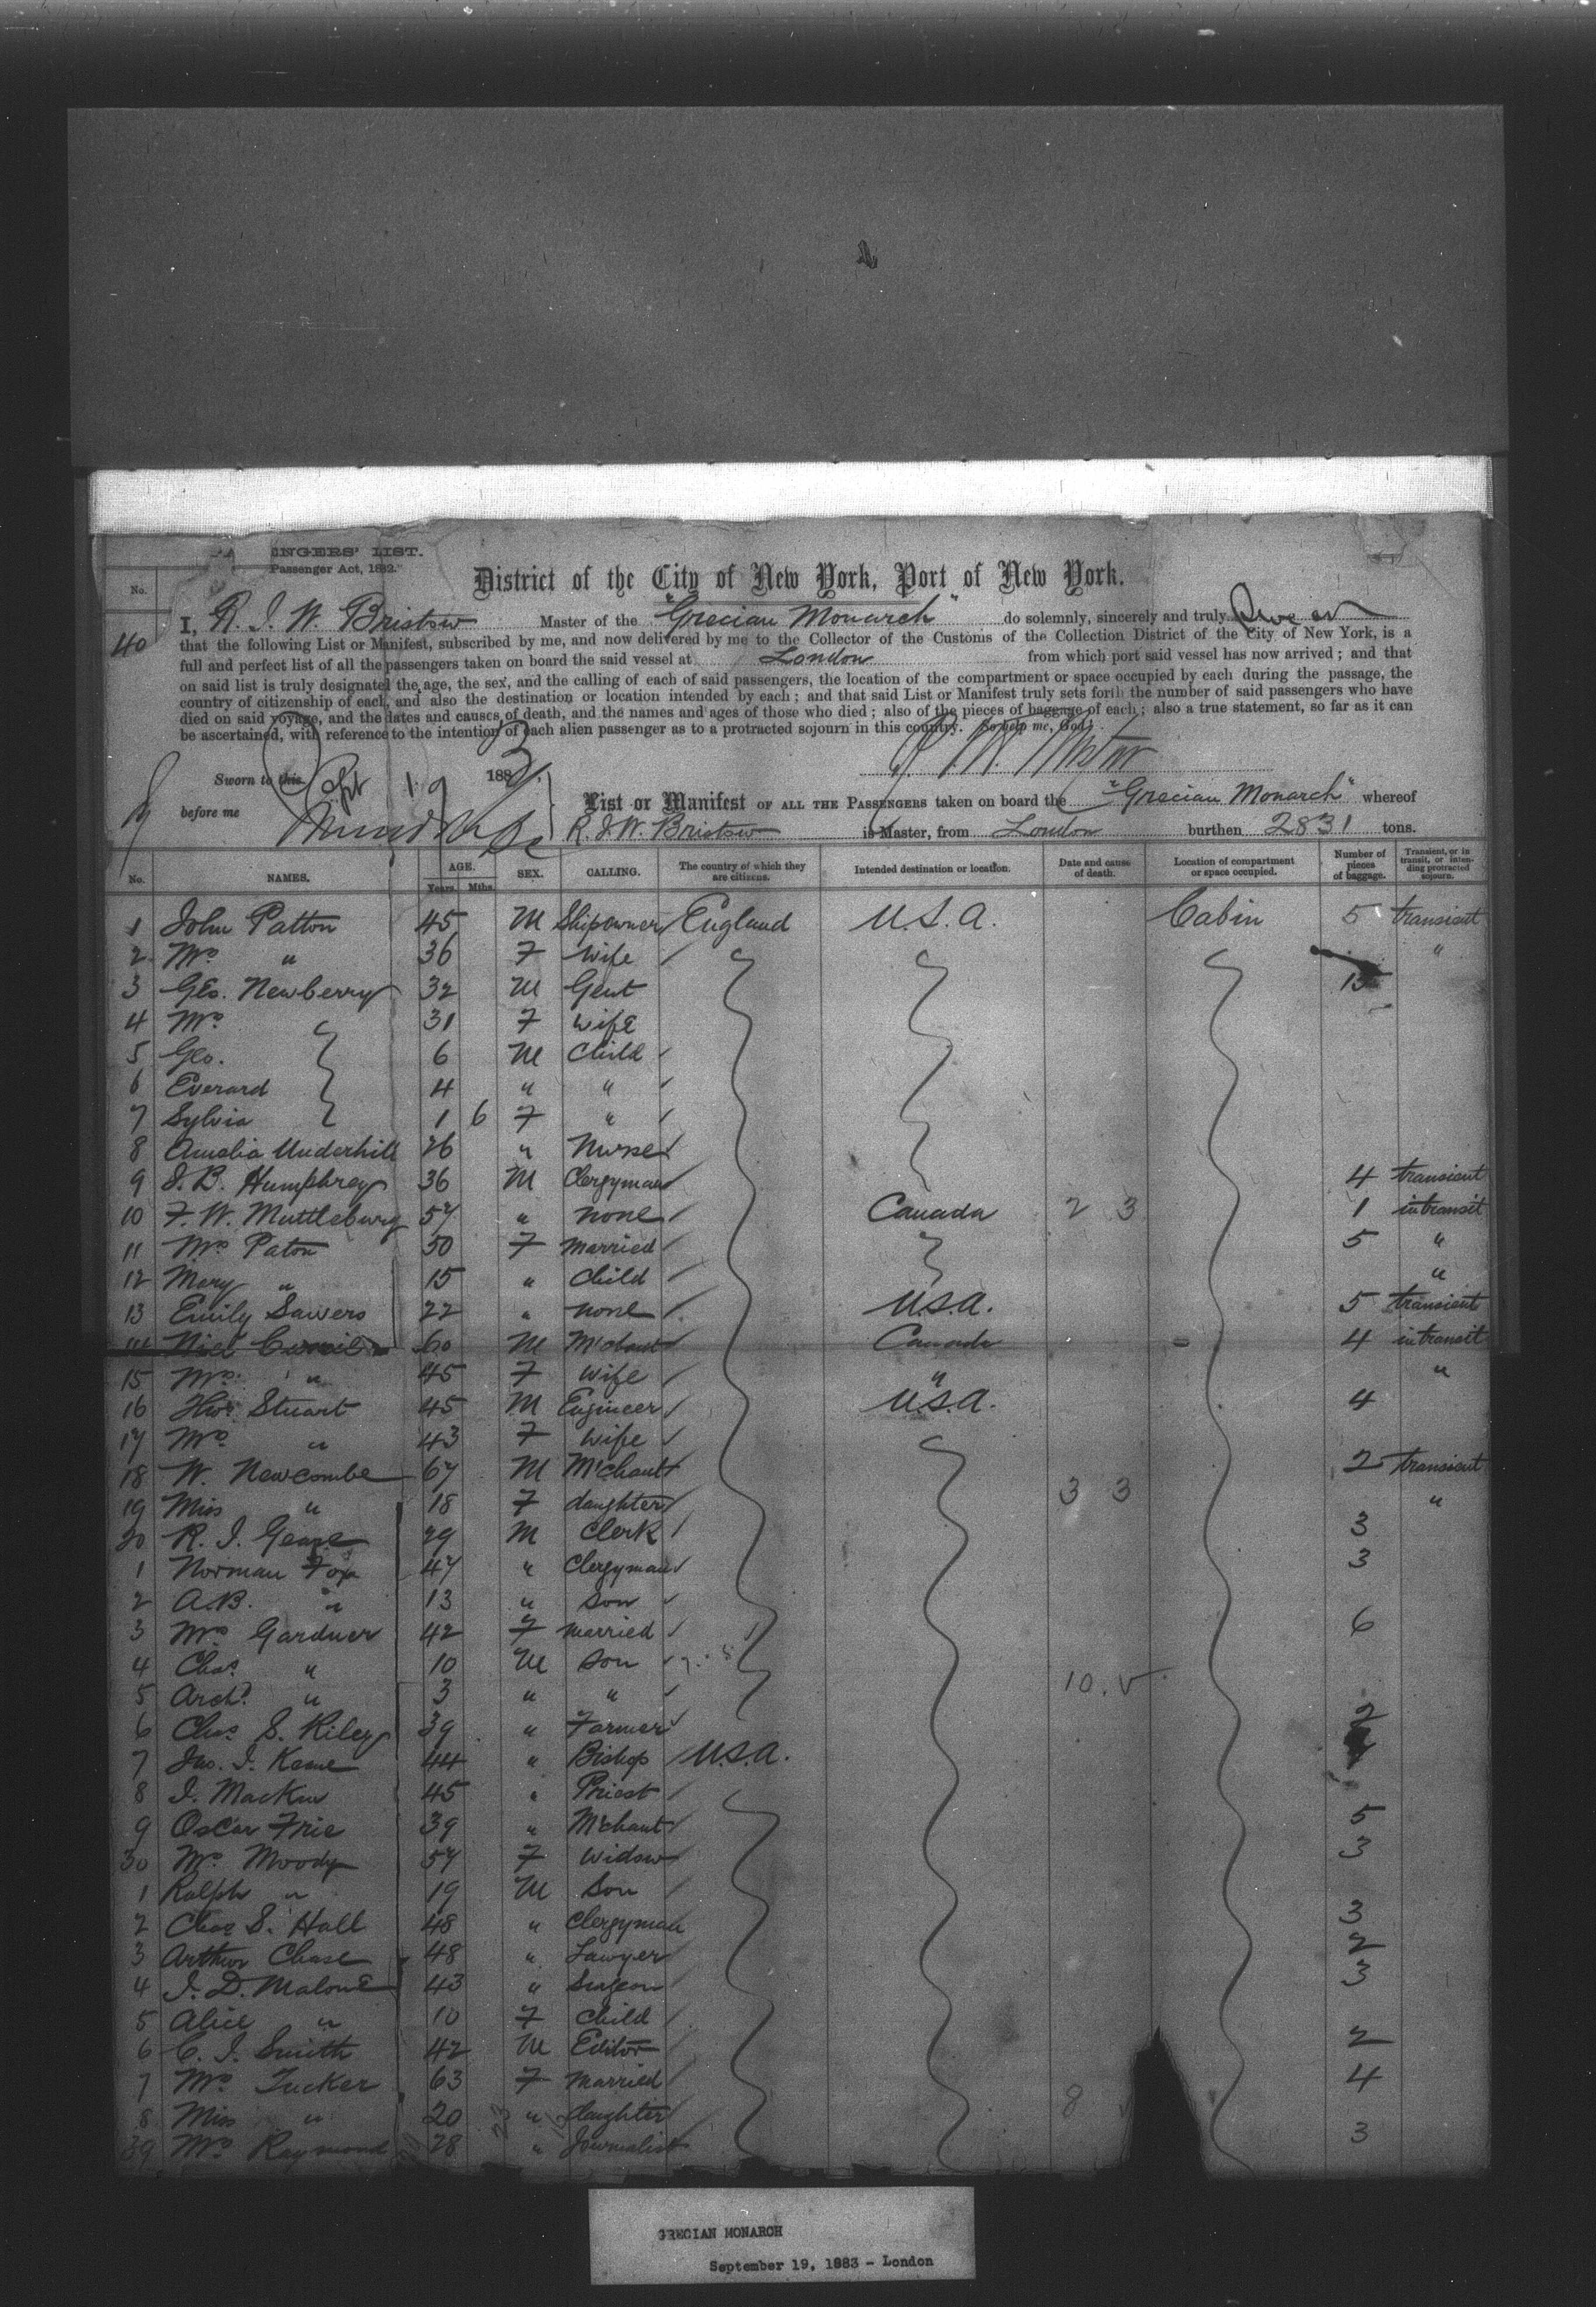 NGERS' LIST.
Passenger Act, 1882."
District of the City of New York, Port of New York.
No.
40
I, R. J. W. Bristow Master of the "Grecian Monarch" do solemnly, sincerely and truly Swear
that the following List or Manifest, subscribed by me, and now delivered by me to the Collector of the Customs of the Collection District of the City of New York, is a
full and perfect list of all the passengers taken on board the said vessel at London from which port said vessel has now arrived; and that
on said list is truly designated the age, the sex, and the calling of each of said passengers, the location of the compartment or space occupied by each during the passage, the
country of citizenship of each, and also the destination or location intended by each; and that said List or Manifest truly sets forth the number of said passengers who have
died on said voyage, and the dates and causes of death, and the names and ages of those who died; also of the pieces of baggage of each; also a true statement, so far as it can
be ascertained, with reference to the intention of each alien passenger as to a protracted sojourn in this country. So help me, God.
Sworn to this Sept 19 1883
before me
List or Manifest OF ALL THE PASSENGERS taken on board the "Grecian Monarch" whereof
R. J. W. Bristow is Master, from London burthen 2831 tons.
No. NAMES. AGE. Years. Mths. SEX. CALLING. The country of which they are citizens. Intended destination or location. Date and cause of death. Location of compartment or space occupied. Number of pieces of baggage. Transient, or in transit, or intending protracted sojourn.
1 John Patton 45 M Shipowner England U.S.A. Cabin 5 transient
2 Mrs " 36 F Wife "
3 Geo. Newberry 32 M Gent 15
4 Mrs 31 F Wife
5 Geo. 6 M Child
6 Everard 4 " "
7 Sylvia 1 6 F "
8 Amelia Underhill 26 " Nurse
9 S. B. Humphrey 36 M Clergyman 4 transient
10 F. W. Muttlebury 57 " none Canada 2 3 1 in transit
11 Mrs Paton 50 F married 5 "
12 Mary " 15 " Child "
13 Emily Sawers 22 " none U.S.A. 5 transient
14 Niel 60 M M'chant Canada 4 in transit
15 Mrs " 45 F Wife " "
16 Thos Stuart 45 M Engineer U.S.A. 4
17 Mrs " 43 F Wife
18 W. Newcombe 67 M M'chant 2 transient
19 Miss " 18 F daughter 3 3 "
20 R. J. Geare 29 M Clerk 3
1 Norman Fox 47 " Clergyman 3
2 A.B. " 13 " Son
3 Mrs Gardner 42 F married 6
4 Chas " 10 M Son
5 Archd " 3 " " 10. v
6 Chas S. Riley 39 " Farmer 2
7 Jno. J. Keane 44 " Bishop U.S.A.
8 J. Mackin 45 " Priest
9 Oscar Frie 39 " M'chant 5
30 Mrs Moody 57 F Widow 3
1 Ralph " 19 M Son
2 Chas S. Hall 48 " Clergyman 3
3 Arthur Chase 48 " Lawyer 2
4 J. D. Malone 43 " Surgeon 3
5 Alice " 10 F Child
6 C. J. Smith 42 M Editor 2
7 Mrs Tucker 63 F married 4
8 Miss " 20 " daughter 8
39 Mrs Raymond 28 " Journalist 3
GRECIAN MONARCH
September 19, 1883 - London